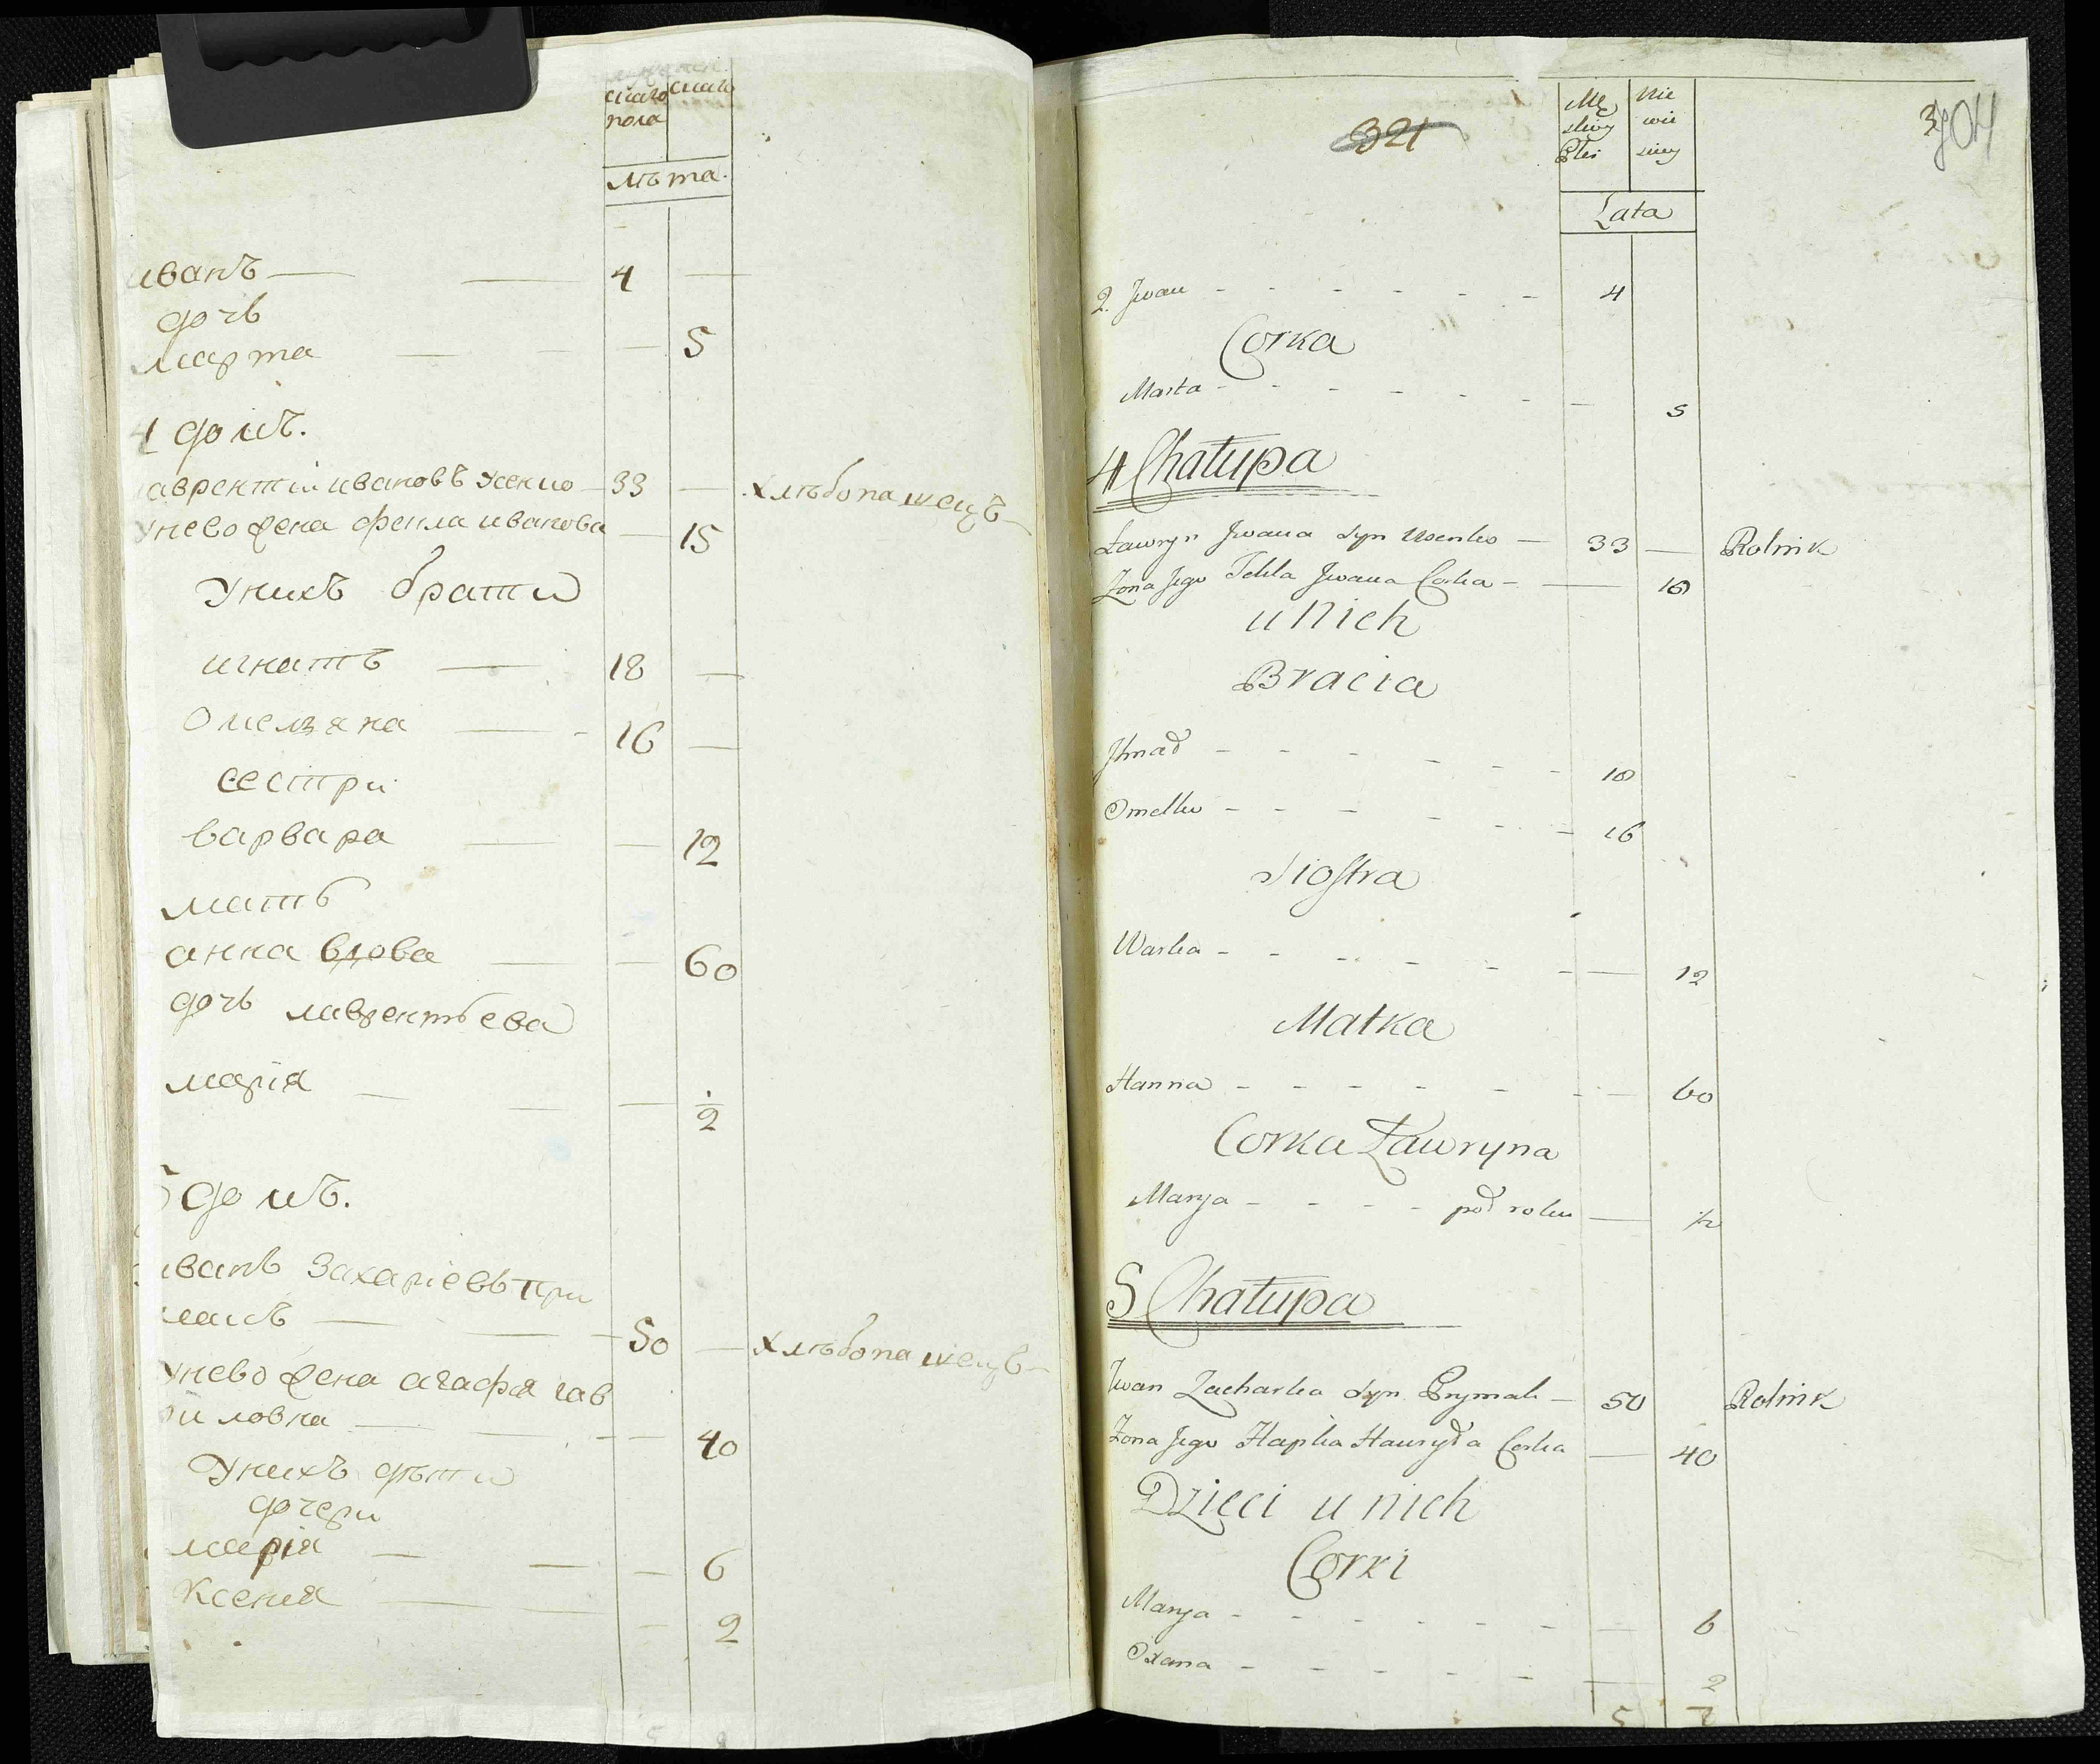 скаго скаго
пола
лѣта.
иванъ — — 4 —
дочь
марта — — — 5
4 домъ.
лаврентій ивановъ усенко — 33 — хлѣбопашецъ
у нево жена фекла иванова — 15
у нихъ братти
игнатъ — 18 —
омеляна — 16 —
сестри
варвара — — 12
мать
анна вдова — — 60
дочь лаврентьева
марія — — — 1/2
5 домъ.
иванъ захаріевъ при
макъ — — 50 — хлѣбопашецъ
у нево жена агафія гав
риловна — — — 40
у нихъ дѣти
дочери
марія — — — 6
Ксенія — — — 2
321
304
Mę Nie
skiey wie
Płci sciey
Lata
2. Jwan - - - - - - 4
Corka
Marta - - - - - - — 5
4 Chałupa
Ławryn Jwana Syn Usenko — 33 — Rolnik
Zona Jego Tekla Jwana Corka - — 16
u Nich
Bracia
Jhnad - - - - - - 18
Omelko - - - - - - 16
Siostra
Warka - - - - - - — 12
Matka
Hanna - - - - - - — 60
Corka Ławryna
Marya - - - - pod rokiem — 1/2
5 Chałupa
Jwan Zacharka Syn Prymak — 50 Rolnik
Zona Jego Hapka Hauryła Corka — 40
Dzieci u nich
Corki
Marya - - - - - - — 6
Oxana - - - - - - — 2
5 7